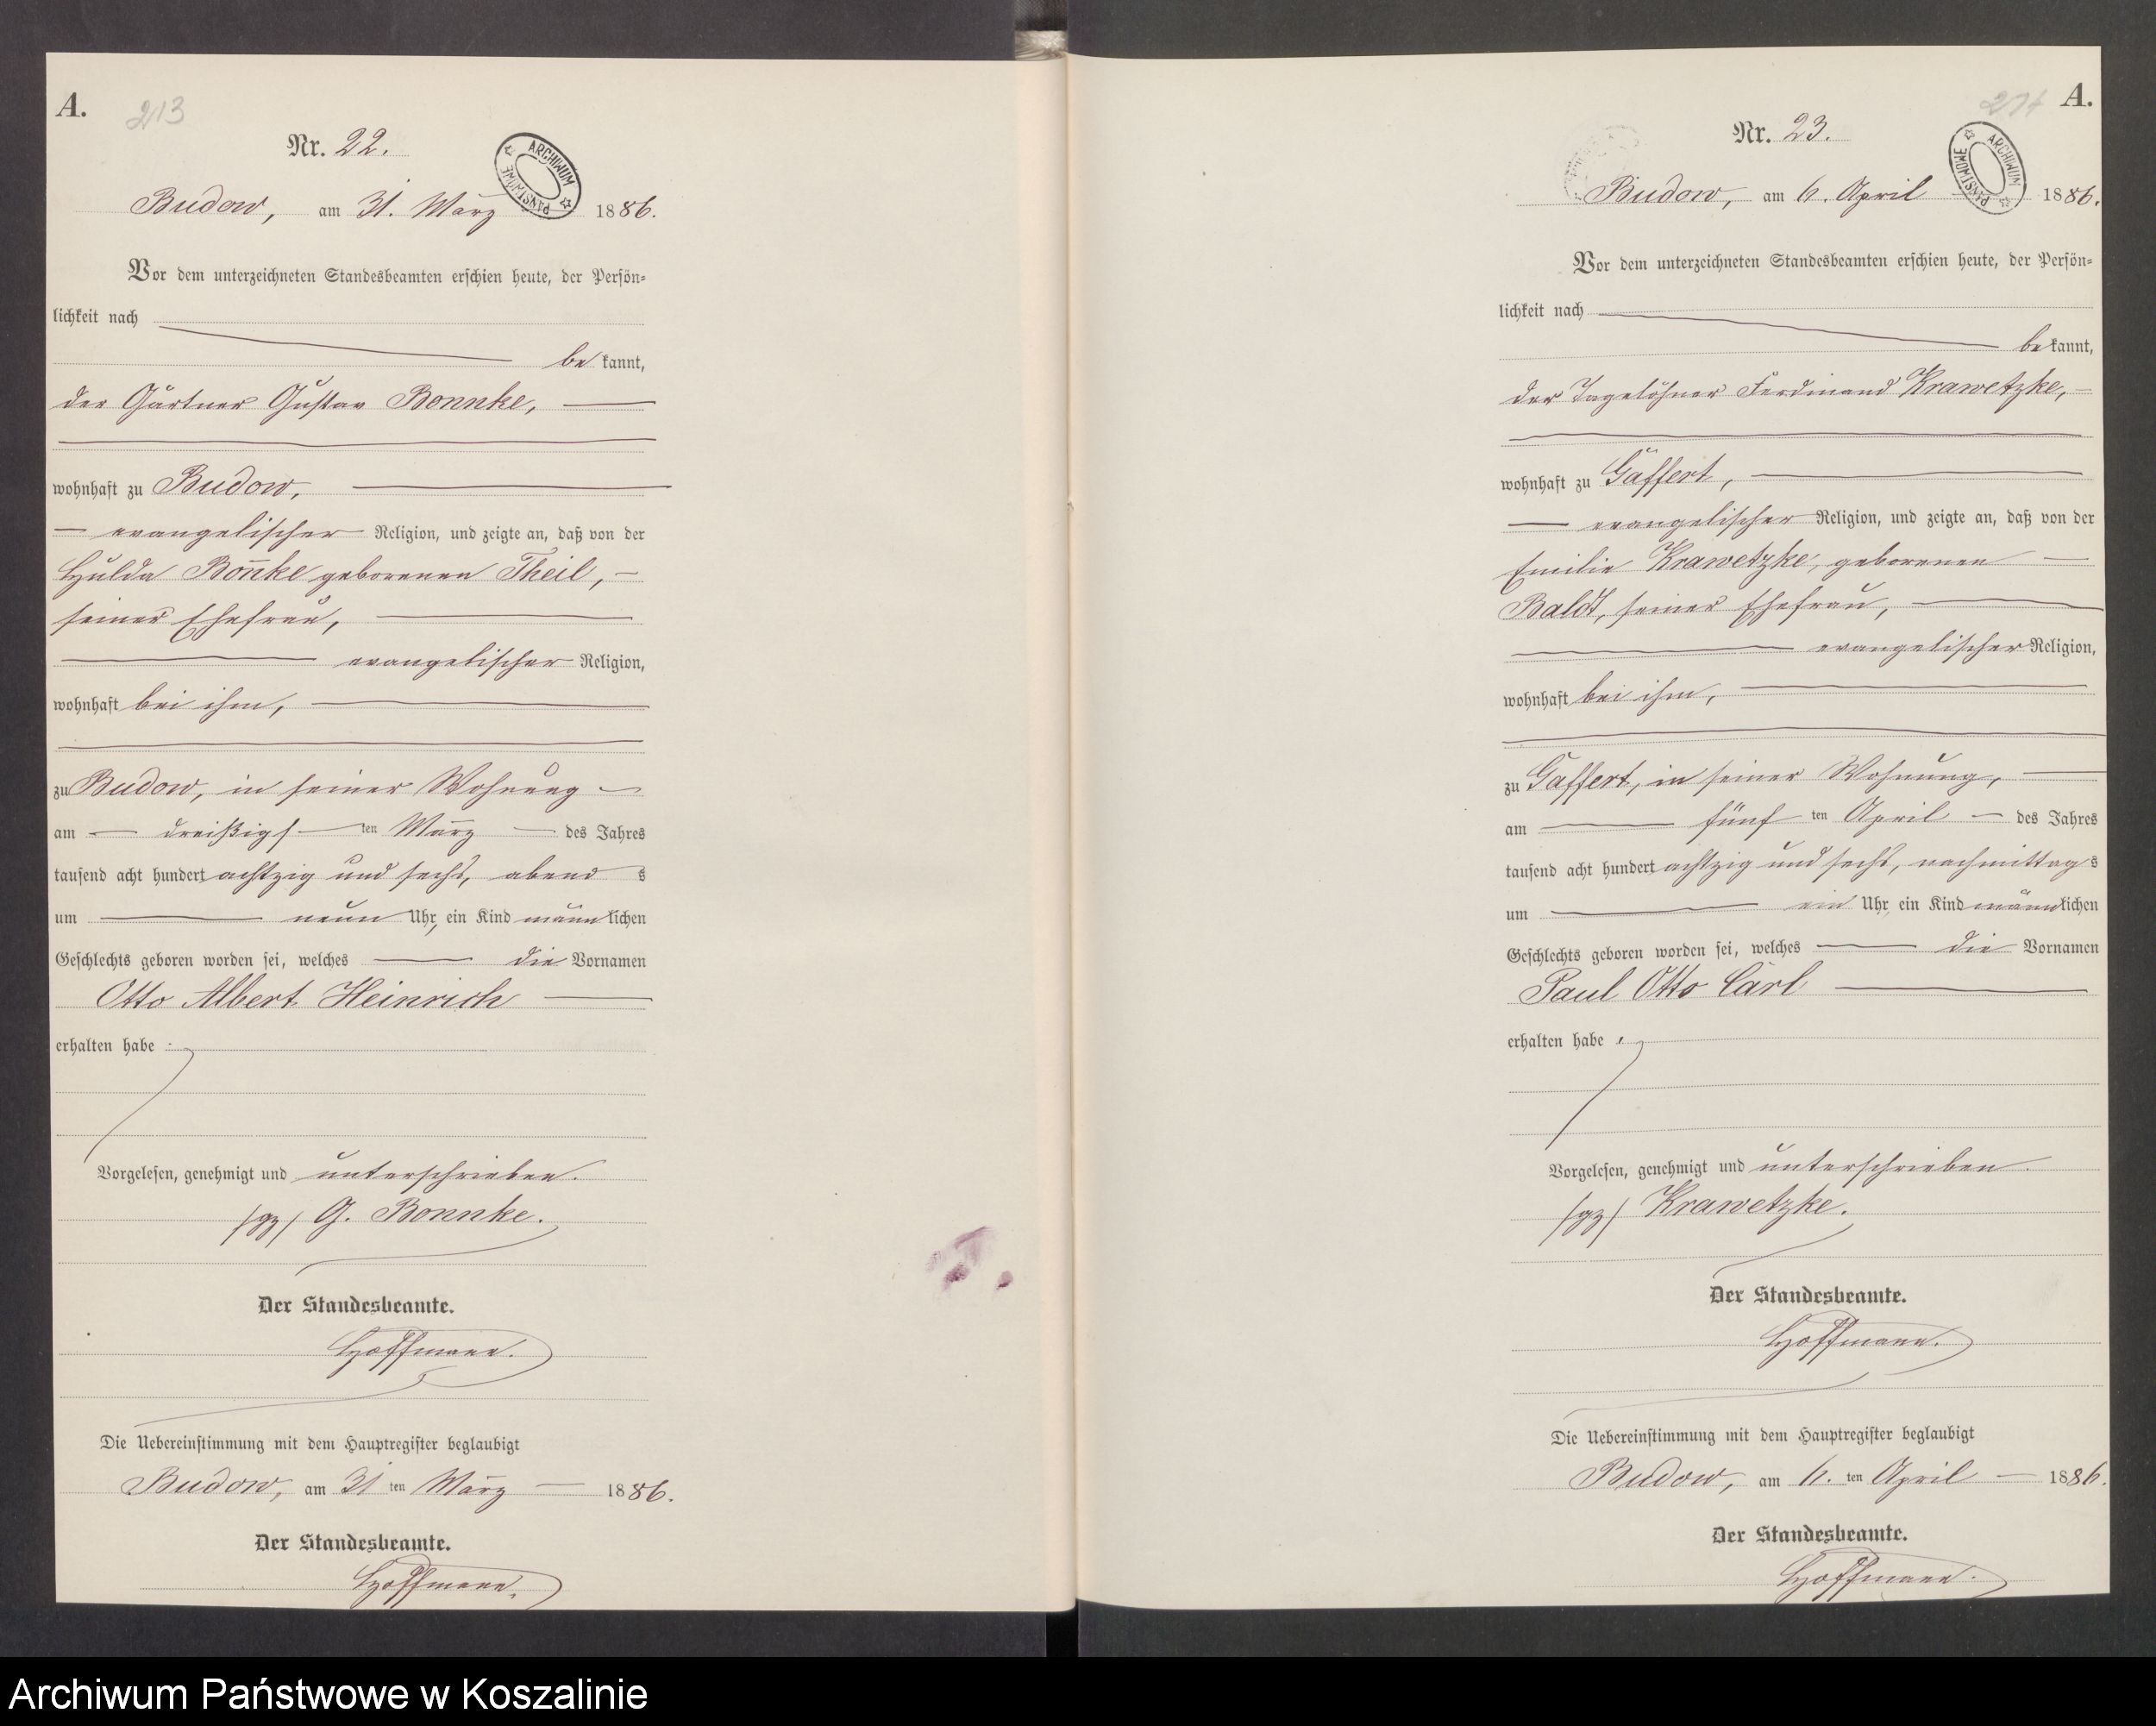 A. 213
Nr. 22.
ARCHIWUM PAŃSTWOWE
Budow, am 31. März 1886.
Vor dem unterzeichneten Standesbeamten erschien heute, der Persön=
lichkeit nach
be kannt,
der Gärtner Gustav Bonnke,
wohnhaft zu Budow,
evangelischer Religion, und zeigte an, daß von der
Hulda Bon̄ke geborenen Theil,
seiner Ehefrau,
evangelischer Religion,
wohnhaft bei ihm,
zu Budow, in seiner Wohnung
am dreißigs ten März des Jahres
tausend acht hundert achtzig und sechs, abend s
um neun Uhr, ein Kind männ lichen
Geschlechts geboren worden sei, welches die Vornamen
Otto Albert Heinrich
erhalten habe.
Vorgelesen, genehmigt und unterschrieben.
/gz/ G. Bonnke.
Der Standesbeamte.
Hoffmann.
Die Uebereinstimmung mit dem Hauptregister beglaubigt
Budow, am 31 ten März 1886.
Der Standesbeamte.
Hoffmann.
214 A.
Nr. 23.
ARCHIWUM PAŃSTWOWE
Budow, am 6. April 1886.
Vor dem unterzeichneten Standesbeamten erschien heute, der Persön=
lichkeit nach
be kannt,
der Tagelöhner Ferdinand Krawetzke,
wohnhaft zu Gaffert,
evangelischer Religion, und zeigte an, daß von der
Emilie Krawetzke, geborenen
Baldt, seiner Ehefrau,
evangelischer Religion,
wohnhaft bei ihm,
zu Gaffert, in seiner Wohnung,
am fünf ten April des Jahres
tausend acht hundert achtzig und sechs, nachmittag s
um ein Uhr, ein Kind männ lichen
Geschlechts geboren worden sei, welches die Vornamen
Paul Otto Carl
erhalten habe.
Vorgelesen, genehmigt und unterschrieben.
/gz/ Krawetzke.
Der Standesbeamte.
Hoffmann.
Die Uebereinstimmung mit dem Hauptregister beglaubigt
Budow, am 6. ten April 1886.
Der Standesbeamte.
Hoffmann.
Archiwum Państwowe w Koszalinie